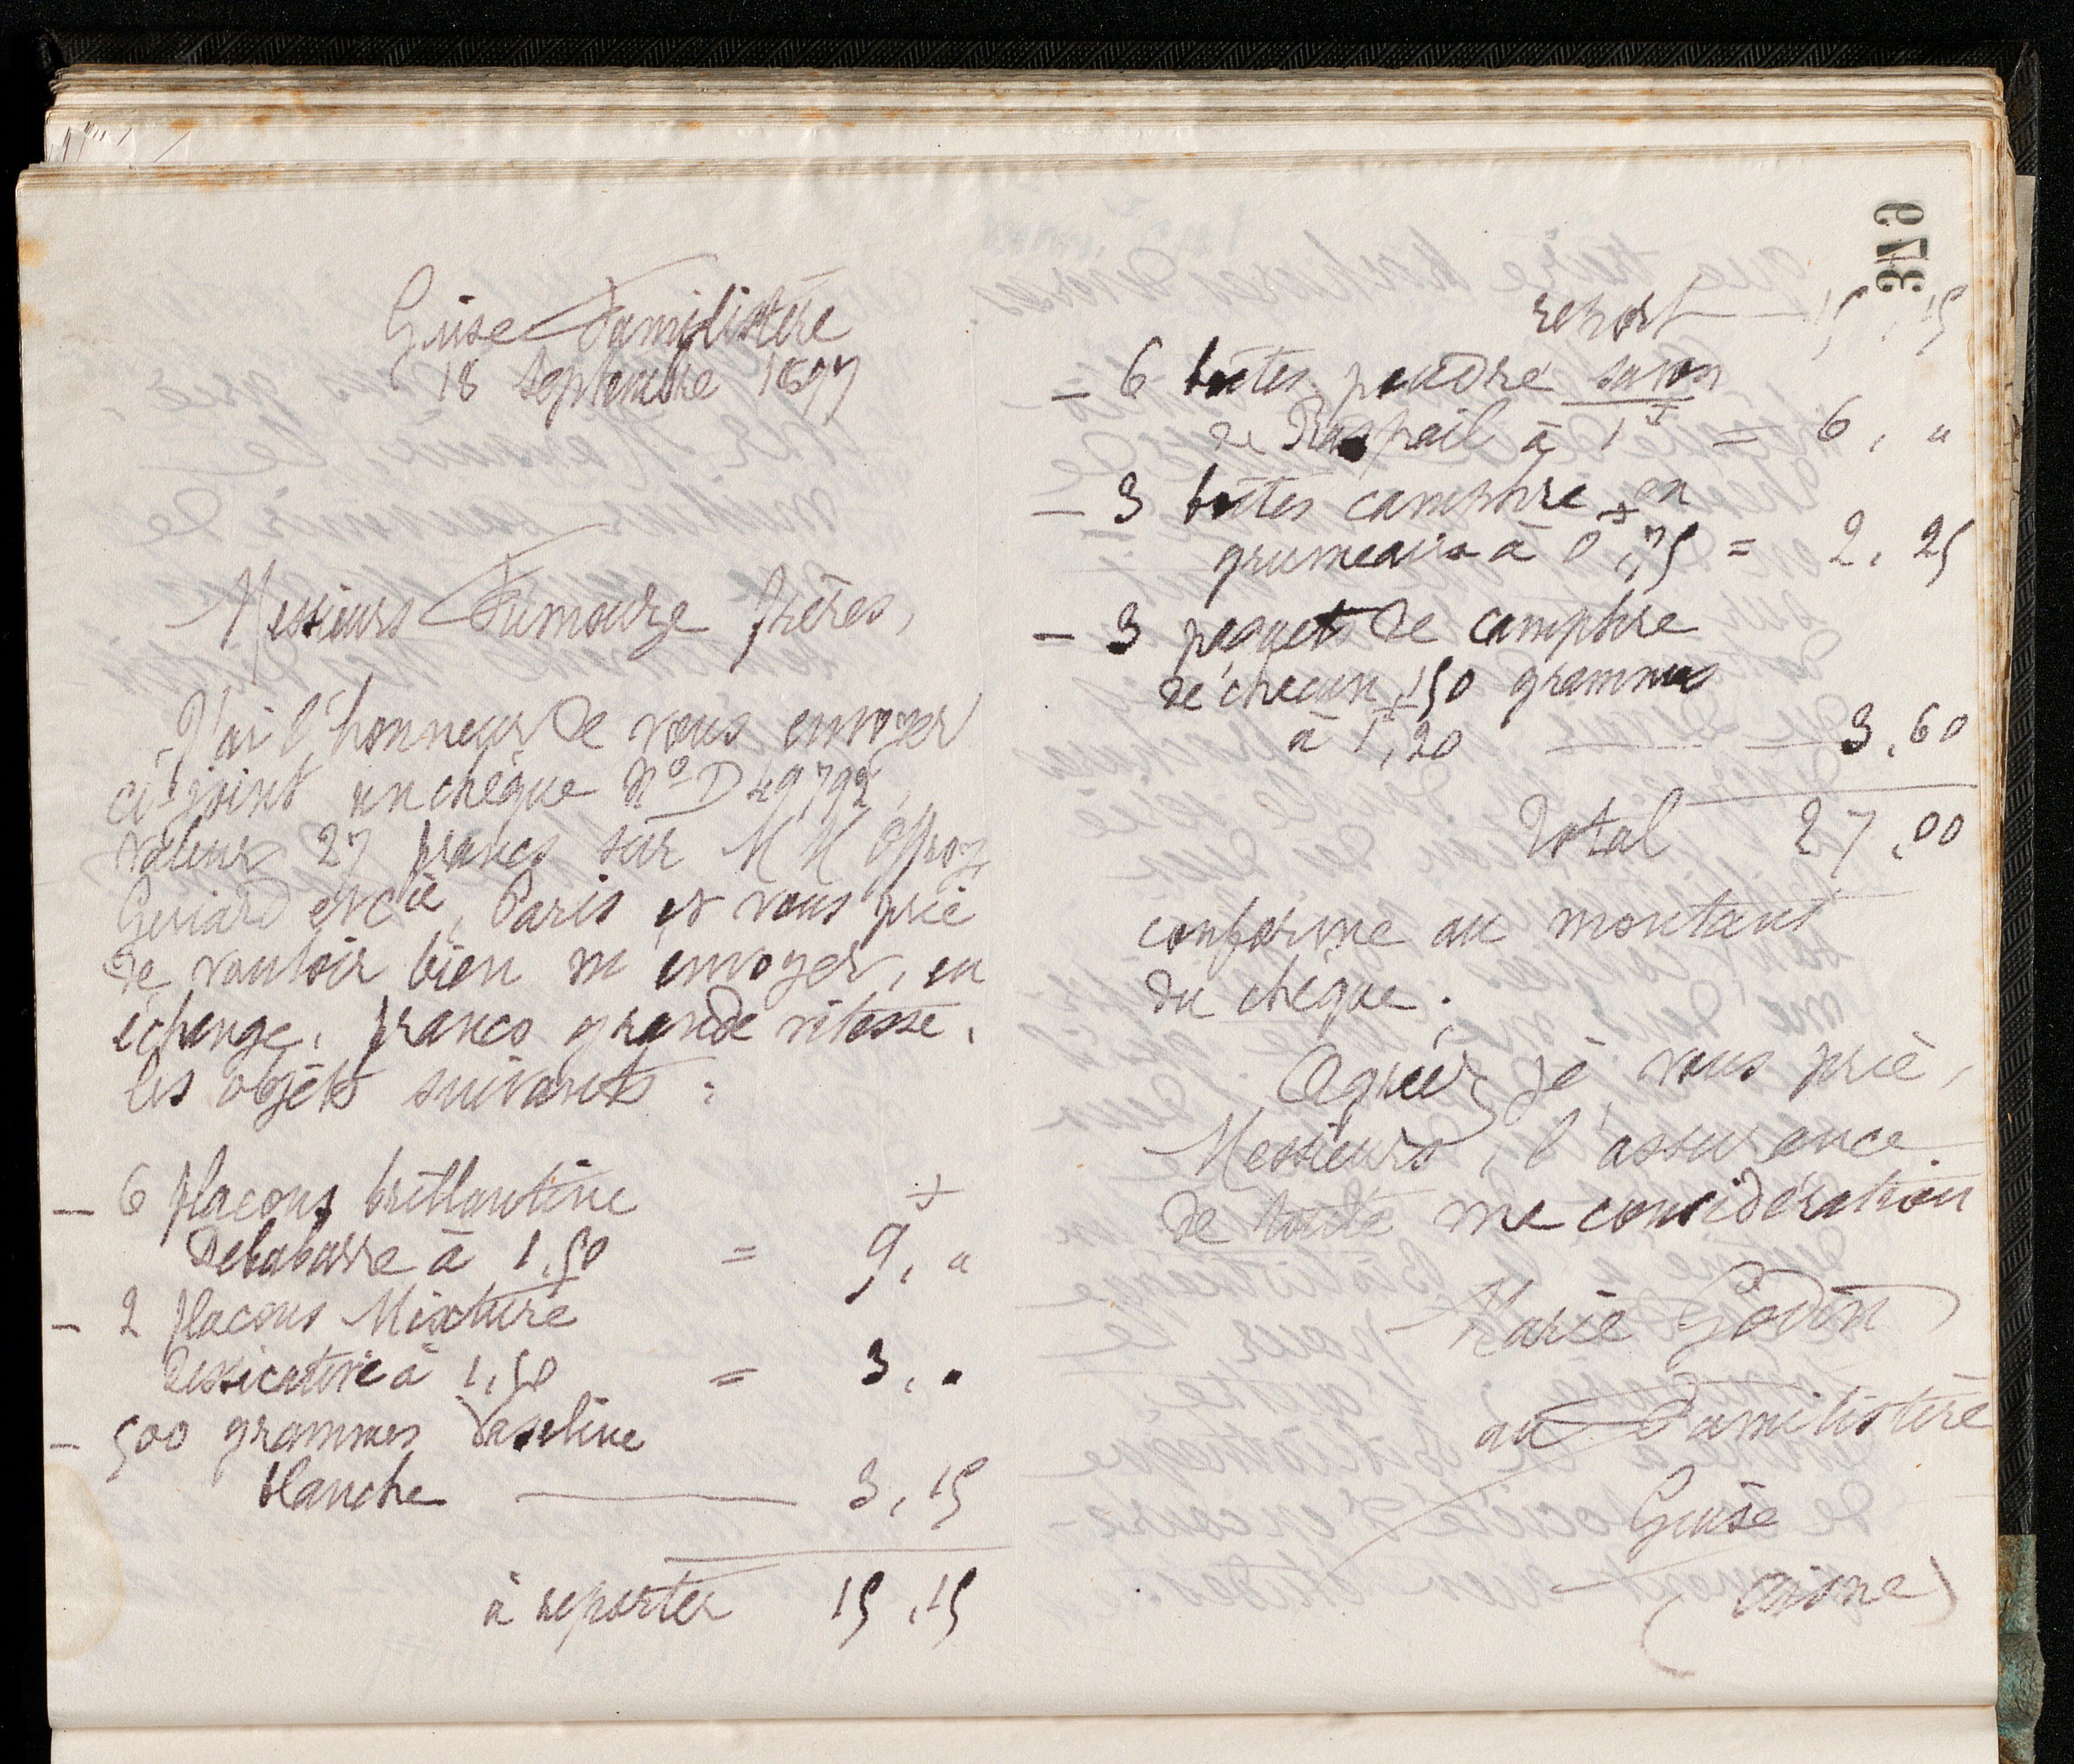 Guise Familistère
18 Septembre 1897
Messieurs Fumouze frères,
J'ai l'honneur de vous envoyer
ci-joint un chèque No D 49792,
valeur 27 francs sur M M Offroy
Guiard et cie, Paris et vous prie
de vouloir bien m'envoyer, en
échange, franco grande vitesse,
les objets suivants :
— 6 flacons brillantine
Delabarre à 1,50 = 9, "
— 2 flacons Mixture
dessicative à 1,50 = 3, "
— 500 grammes Vaseline
blanche — 3,15
à reporter 15,15
379
report — 15,15
— 6 boîtes poudre savon
de Raspail à 1f = 6, "
— 3 boîtes camphre en
grumeaux à 0f,75 = 2,25
— 3 paquets de camphre
de chacun 150 grammes
à 1f,20 — 3,60
Total 27,00
conforme au montant
du chèque.
Agréez, je vous prie,
Messieurs, l'assurance
de toute ma considération
Marie Godin
au Familistère
Guise
(Aisne)